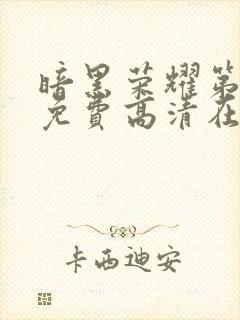 暗黑荣耀第
免費高清在
卡西迪安